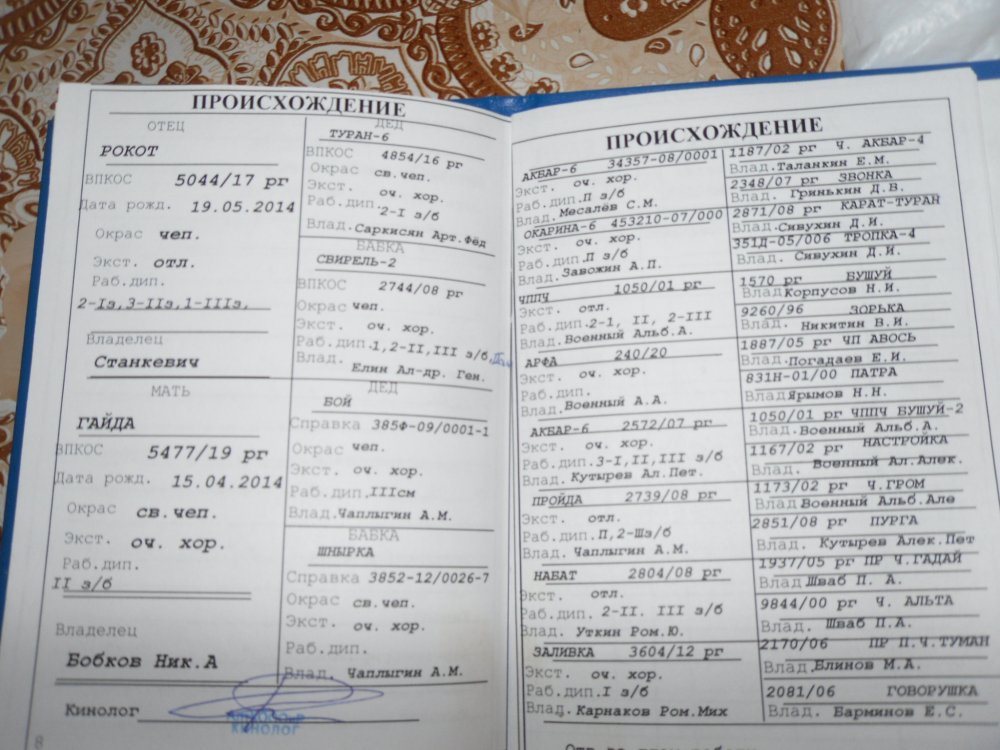 ПРОИСХОЖДЕНИЕ
ОТЕЦ
РОКОТ
ВПКОС 5044/17 рг
Дата рожд. 19.05.2014
Окрас чеп.
Экст. отл.
Раб.дип.
2-Iз,3-IIз,1-IIIз,
Владелец
Станкевич
МАТЬ
ГАЙДА
ВПКОС 5477/19 рг
Дата рожд. 15.04.2014
Окрас св.чеп.
Экст. оч. хор.
Раб.дип.
II з/б
Владелец
Бобков Ник.А
Кинолог
КИНОЛОГ
8
ДЕД
ТУРАН-6
ВПКОС 4854/16 рг
Окрас св.чеп.
Экст. оч. хор.
Раб.дип.
2-I з/б
Влад.Саркисян Арт.Фёд
БАБКА
СВИРЕЛЬ-2
ВПКОС 2744/08 рг
Окрас чеп.
Экст. оч. хор.
Раб.дип.1,2-II,III з/б,
Влад. Елин Ал-др. Ген.
ДЕД
БОЙ
Справка 385Ф-09/0001-1
Окрас чеп.
Экст. оч. хор.
Раб.дип,IIIсм
Влад.Чаплыгин А.М.
БАБКА
ШНЫРКА
Справка 3852-12/0026-7
Окрас св.чеп.
Экст. оч. хор.
Раб.дип.
Влад.Чаплыгин А.М.
ПРОИСХОЖДЕНИЕ
АКБАР-6 34357-08/0001
Экст. оч. хор.
Раб.дип.П з/б
Влад.Месалёв С.М.
ОКАРИНА-6 453210-07/000
Экст. оч. хор.
Раб.дип.П з/б
Влад.Завожин А.П.
ЧППЧ 1050/01 рг
Экст. отл.
Раб.дип.2-1, II, 2-III
Влад.Военный Альб.А.
АРФА 240/20
Экст. оч. хор.
Раб.дип.
Влад.Военный А.А.
АКБАР-6 2572/07 рг
Экст. оч. хор.
Раб.дип.3-I,II,III з/б
Влад.Кутырев Ал.Пет.
ПРОЙДА 2739/08 рг
Экст. отл.
Раб.дип.П,2-Шз/б
Влад.Чаплыгин А.М.
НАБАТ 2804/08 рг
Экст. отл.
Раб.дип. 2-II. III з/б
Влад. Уткин Ром.Ю.
ЗАЛИВКА 3604/12 рг
Экст. оч. хор.
Раб.дип.I з/б
Влад.Карнаков Ром.Мих
1187/02 рг Ч. АКБАР-4
Влад.Таланкин Е.М.
2348/07 рг ЗВОНКА
Влад. Гринькин Д.В.
2871/08 рг КАРАТ-ТУРАН
Влад.Сивухин Д.И.
351Д-05/006 ТРОПКА-4
Влад. Сивухин Д.И.
1570 рг БУШУЙ
Влад.Корпусов Н.И.
9260/96 ЗОРЬКА
Влад. Никитин В.И.
1887/05 рг ЧП АВОСЬ
Влад.Погадаев Е.И.
831Н-01/00 ПАТРА
Влад.Ярымов Н.Н.
1050/01 рг ЧППЧ БУШУЙ-2
Влад.Военный Альб.А.
1167/02 рг НАСТРОЙКА
Влад. Военный Ал.Алек.
1173/02 рг Ч.ГРОМ
Влад.Военный Альб.Але
2851/08 рг ПУРГА
Влад. Кутырев Алек.Пет
1937/05 рг ПР Ч.ГАДАЙ
Влад.Шваб П. А.
9844/00 рг Ч. АЛЬТА
Влад. Шваб П.А.
2170/06 ПР П.Ч.ТУМАН
Влад.Блинов М.А.
2081/06 ГОВОРУШКА
Влад. Барминов Е.С.